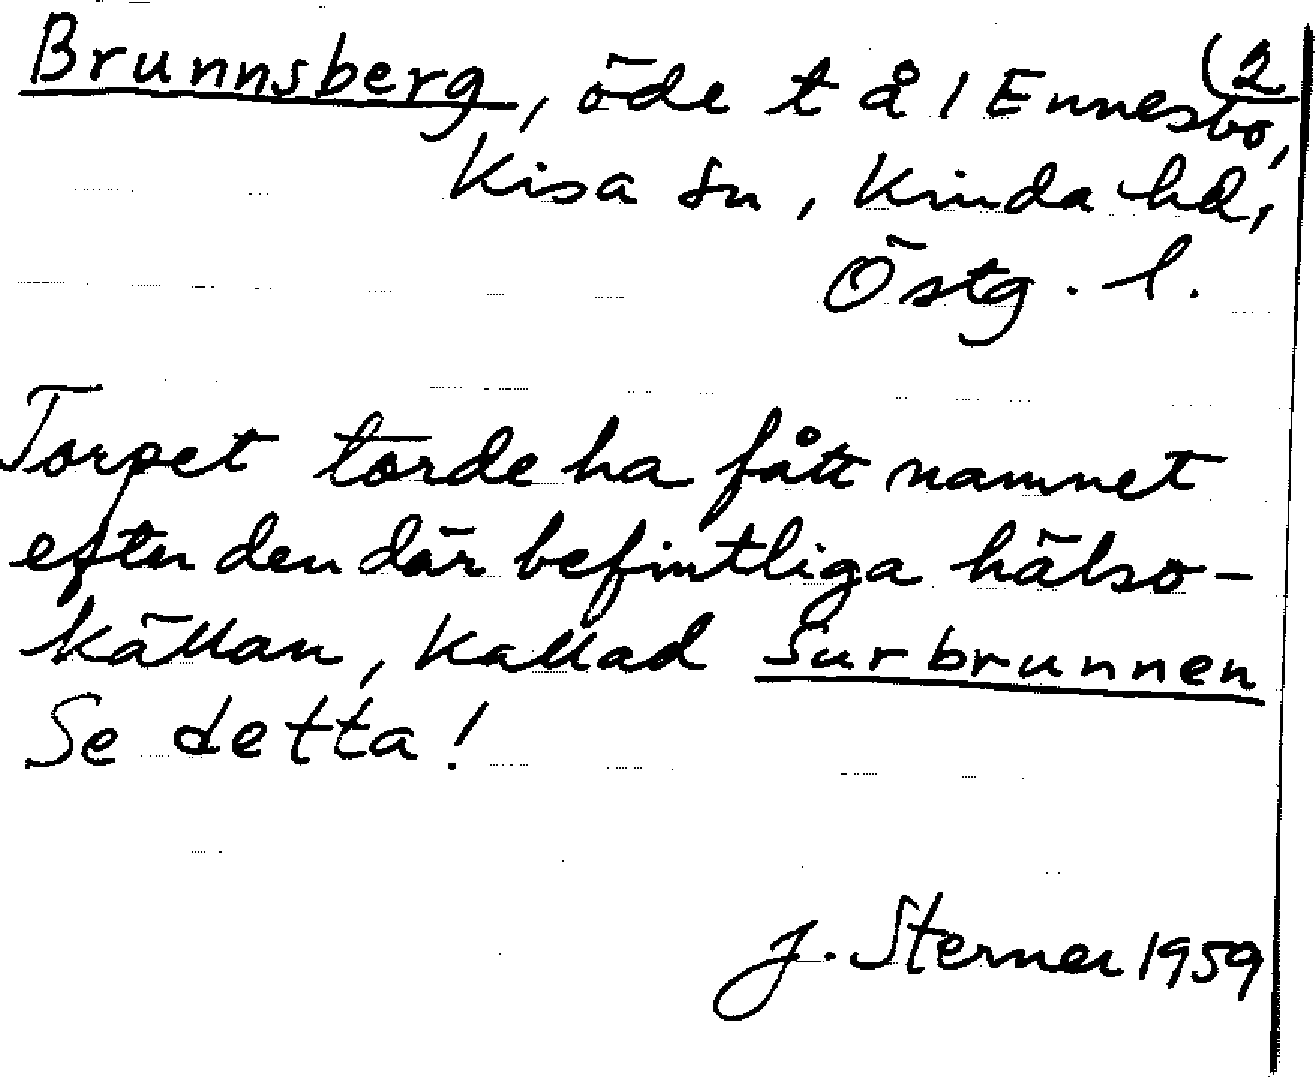 (2
Brunnsberg, öde t å 1 Ennesbo,
Kisa sn, Kinda hd,
Östg. l.
Torpet torde ha fått namnet
efter den där befintliga hälso-
källan, kallad Surbrunnen
Se detta!
J. Sterner 1959